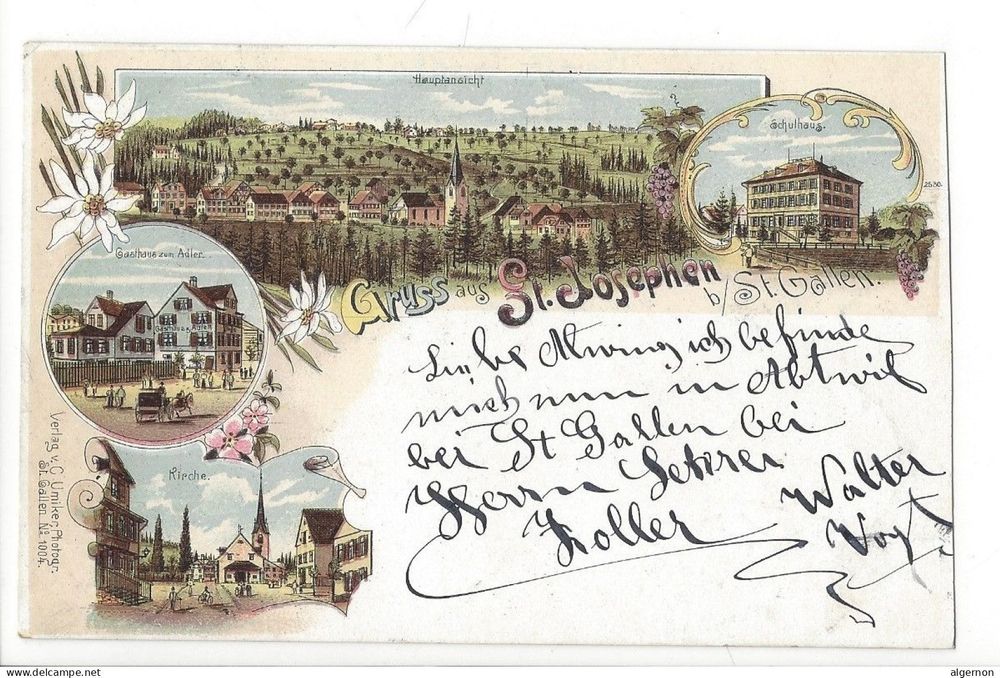 Hauptansicht
Schulhaus.
2530.
Gasthaus zum Adler.
Gasthaus z. Adler
Gruss aus St. Josephen b/ St. Gallen.
Kirche.
Verlag v. C. Umiker, Photogr.
St. Gallen. No 1004.
Liebe ich befinde
mich nun in Abtwil
bei St Gallen bei
Herrn Lehrer
Zoller
Walter
Vogt
delcampe.net
algernon